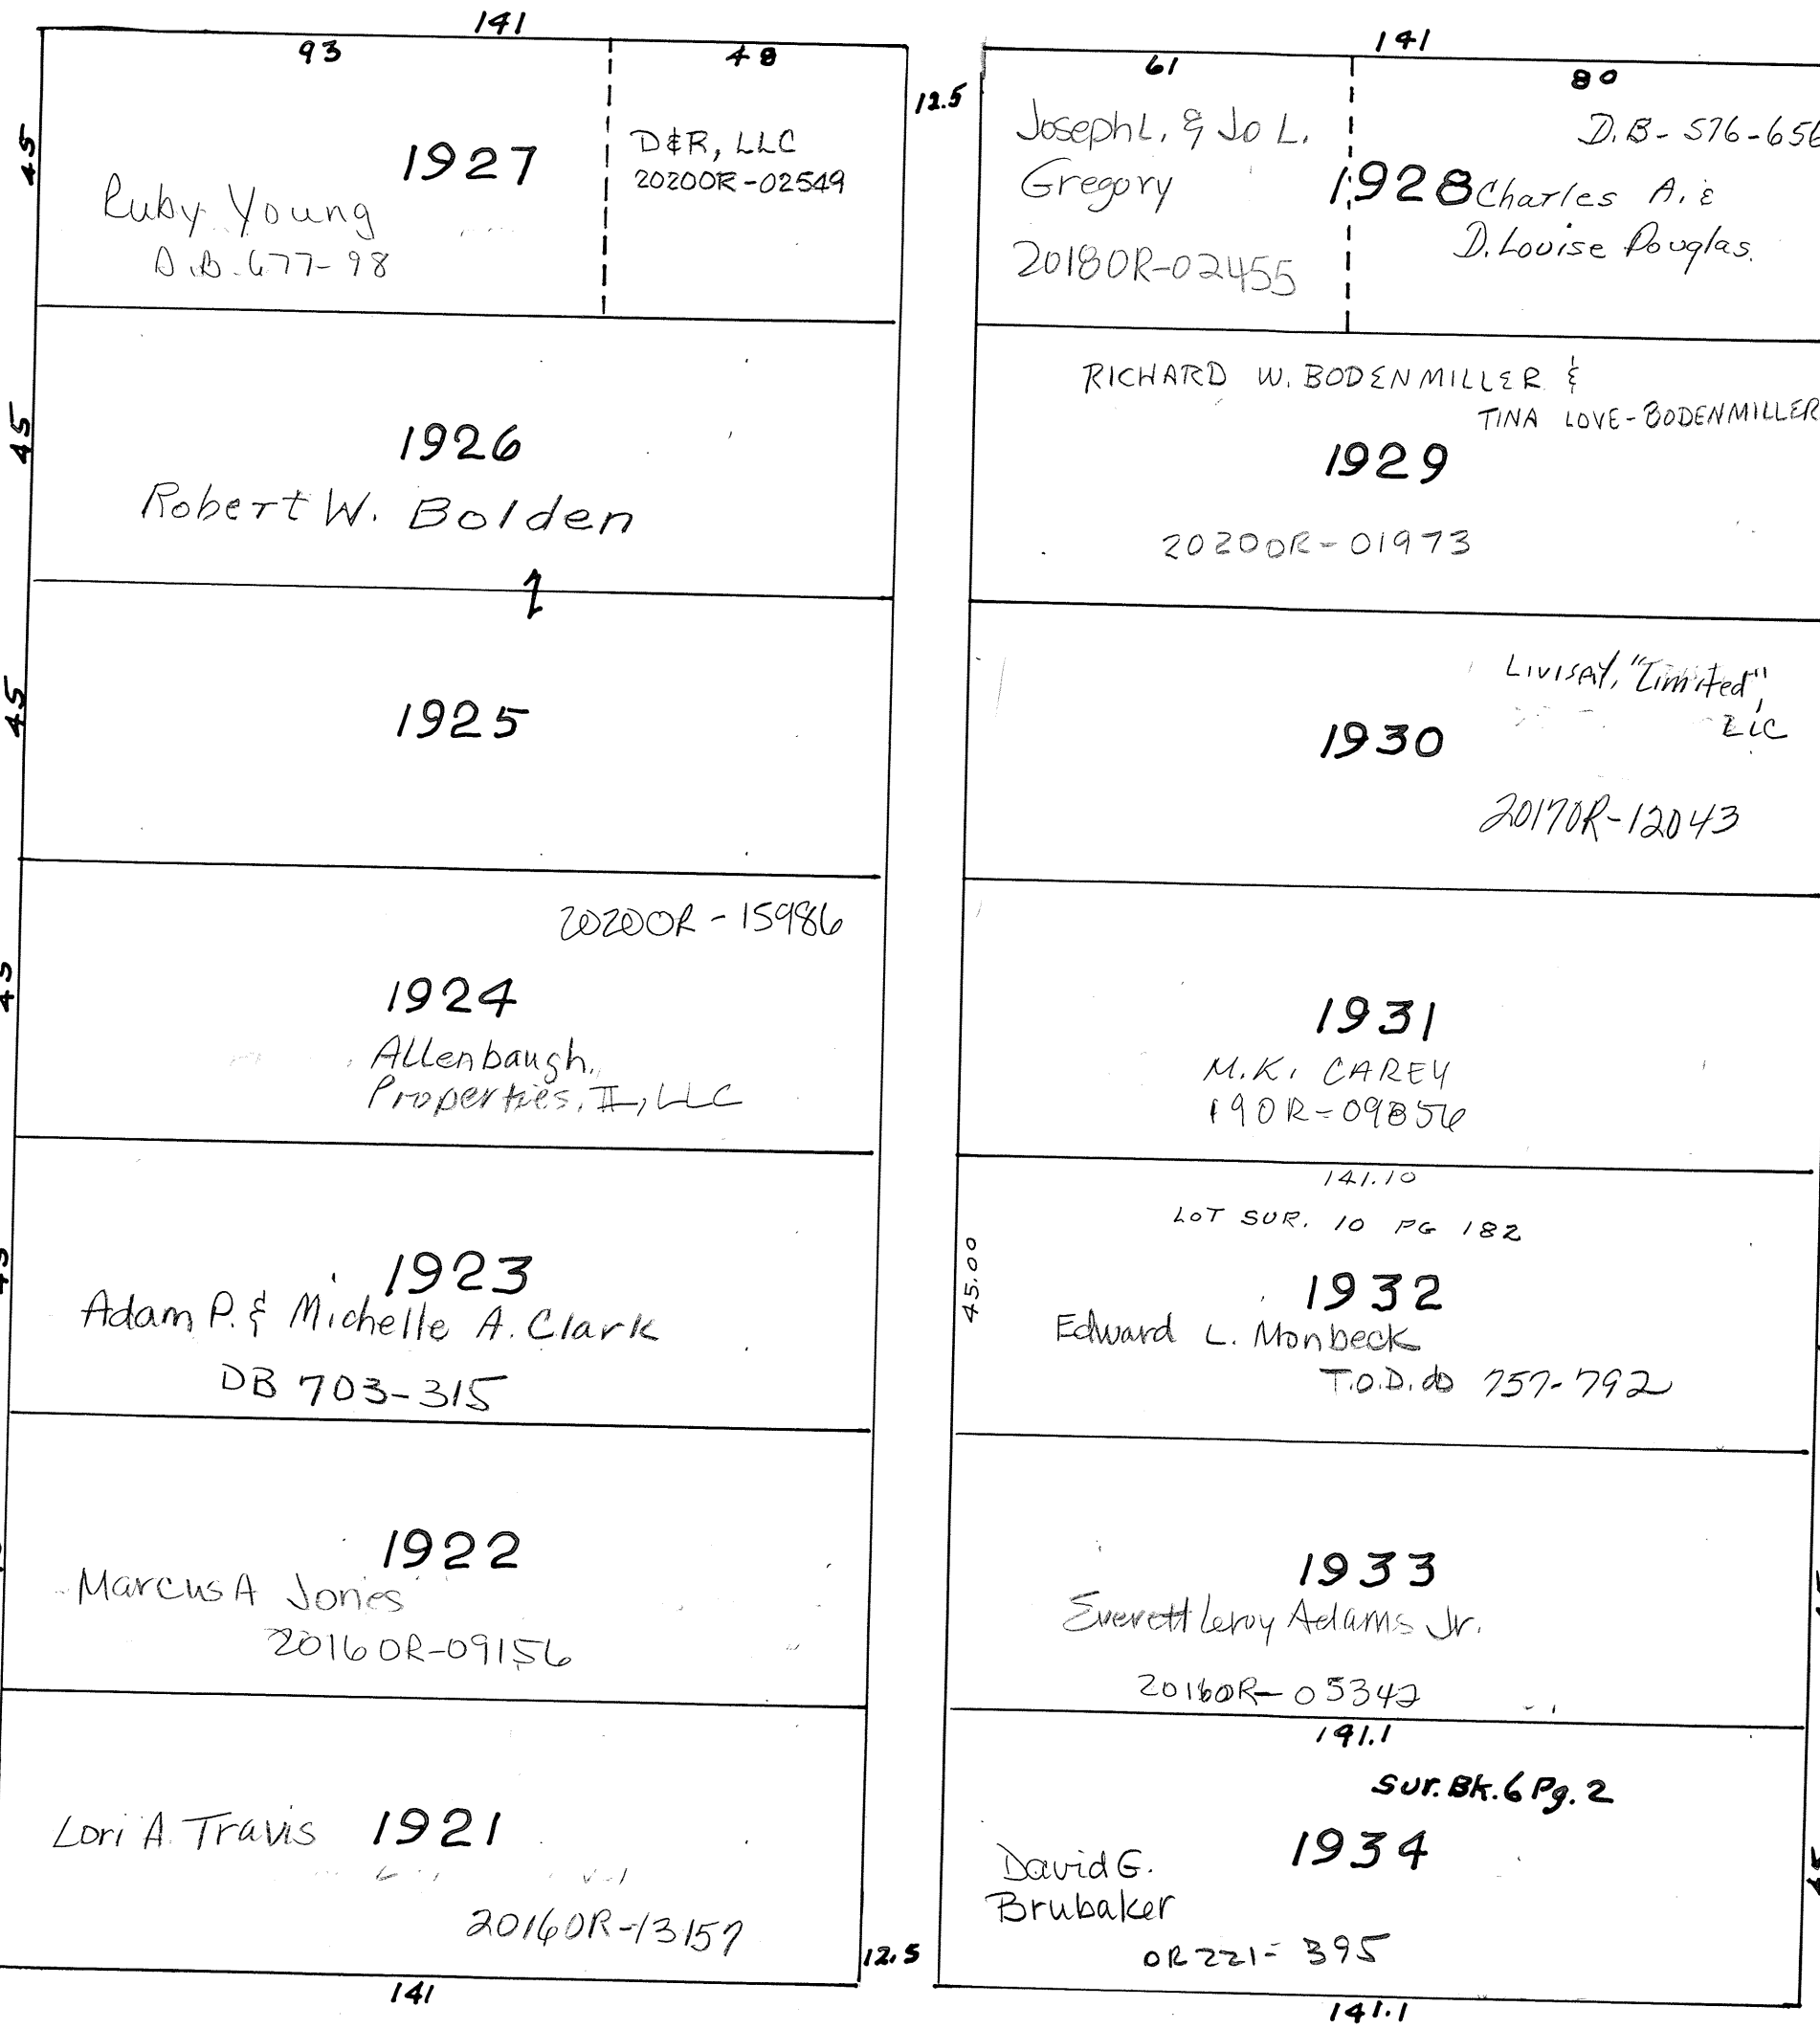 141
93
48
45
1927
D&R, LLC
2020OR-02549
Ruby Young
D.B. 677-98
45
1926
Robert W. Bolden
45
1925
45
2020OR-15986
1924
Allenbaugh
Properties, II, LLC
45
1923
Adam P. & Michelle A. Clark
DB 703-315
1922
Marcus A Jones
2016OR-09156
Lori A. Travis 1921
2016OR-13157
141
12.5
12.5
141
61
80
Joseph L. & Jo L.
Gregory
2018OR-02455
1928
D.B- 576-656
Charles A. &
D. Louise Douglas
RICHARD W. BODENMILLER &
TINA LOVE-BODENMILLER
1929
2020OR-01973
Livisay, "Limited",
LLC
1930
2017OR-12043
1931
M.K. CAREY
19OR-09856
141.10
LOT SUR. 10 PG 182
45.00
1932
Edward L. Monbeck
T.O.D. 757-792
1933
Everett Leroy Adams Jr.
2016OR-05342
141.1
Sur. Bk. 6 Pg. 2
1934
45
David G.
Brubaker
OR 221-395
141.1